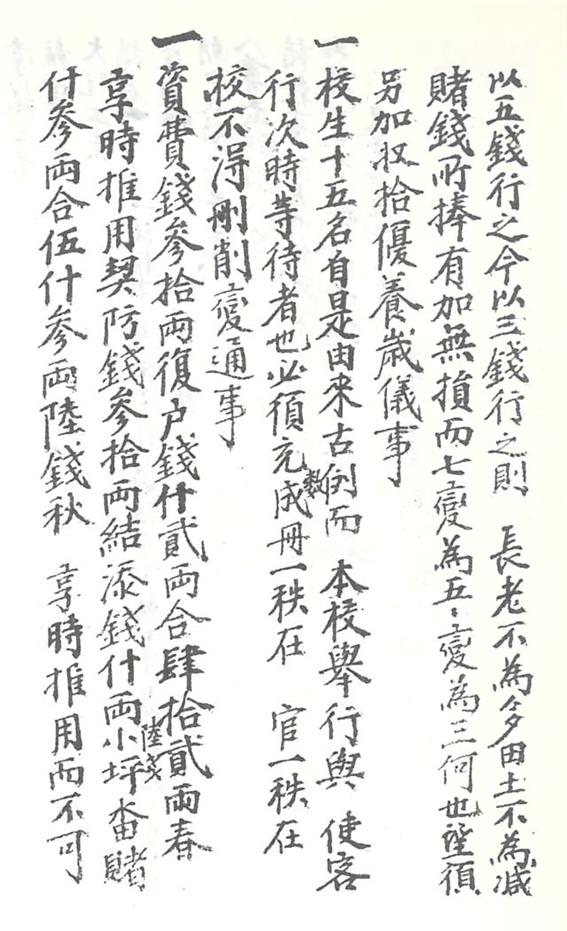 以五錢行之今以三錢行之則 長老不為多田土不為减
賭錢所捧有加無損而七変為五〻変為三何也望須
另加収拾優養歲儀事
一校生十五名自是由来古例而 本校舉行與 使客
行次時等待者也必須充成數冊一秩在 官一秩在
校不淂刪削変通事
一資費錢參拾兩復户錢什貳兩合肆拾貳兩春
享時推用契防錢參拾兩結添錢什兩小坪畓賭陸戔
什參兩合伍什參兩陸錢秋 享時推用而不可